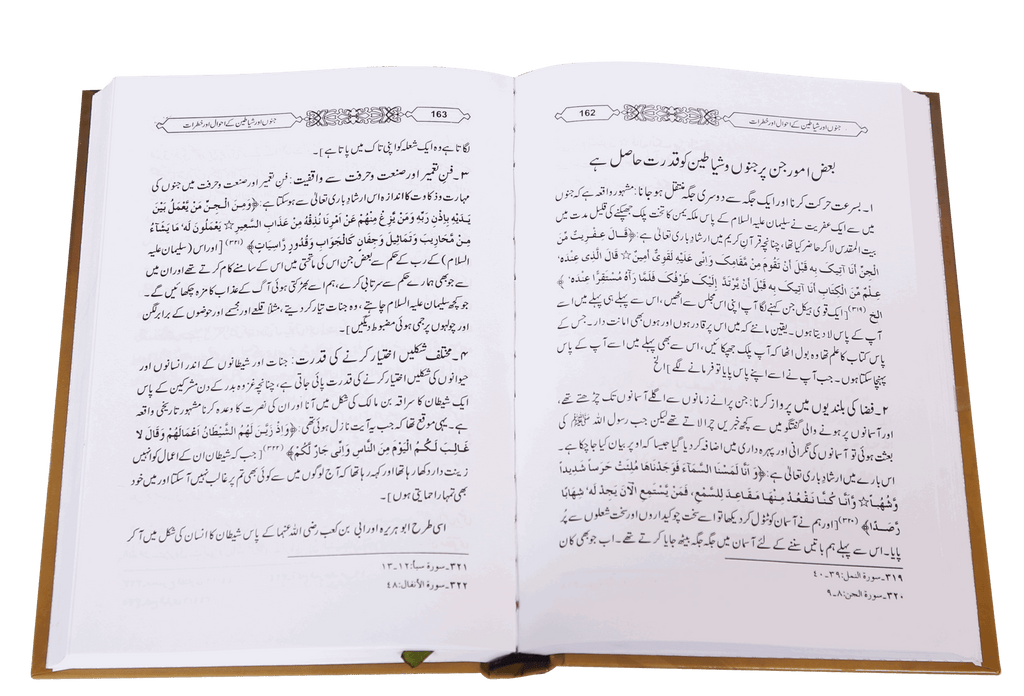 162
جنوں اور شیاطین کے احوال اور خطرات
بعض امور جن پر جنوں و شیاطین کو قدرت حاصل ہے
۱۔ بسرعت حرکت کرنا اور ایک جگہ سے دوسری جگہ منتقل ہو جانا: مشہور واقعہ ہے کہ جنوں
میں سے ایک عفریت نے سلیمان علیہ السلام کے پاس ملکہ یمن کا تخت پلک جھپکنے کی قلیل مدت میں
بیت المقدس لا کر حاضر کیا تھا، چنانچہ قرآن کریم میں ارشاد باری تعالی ہے: ﴿قَالَ عِفْرِيتٌ مِّنَ
الْجِنِّ أَنَا آتِيكَ بِهِ قَبْلَ أَنْ تَقُومَ مِنْ مَّقَامِكَ وَإِنِّي عَلَيْهِ لَقَوِيٌّ أَمِينٌ☆ قَالَ الَّذِي عِنْدَهُ
عِلْمٌ مِّنَ الْكِتَابِ أَنَا آتِيكَ بِهِ قَبْلَ أَنْ يَّرْتَدَّ إِلَيْكَ طَرْفُكَ فَلَمَّا رَآهُ مُسْتَقِرًّا عِنْدَهُ ﴾
الخ (۳۱۹)[ ایک قوی ہیکل جن کہنے لگا آپ اپنی اس مجلس سے اٹھیں، اس سے پہلے ہی پہلے میں اسے
آپ کے پاس لا دیتا ہوں۔ یقین مانئے کہ میں اس پر قادر ہوں اور ہوں بھی امانت دار۔ جس کے
پاس کتاب کا علم تھا وہ بول اٹھا کہ آپ پلک جھپکائیں، اس سے بھی پہلے میں اسے آپ کے پاس
پہنچا سکتا ہوں۔ جب آپ نے اسے اپنے پاس پایا تو فرمانے لگے] الخ
۲۔ فضا کی بلندیوں میں پرواز کرنا: جن پرانے زمانوں سے اگلے آسمانوں تک چڑھتے تھے،
اور آسمانوں پر ہونے والی گفتگو میں سے کچھ خبریں چرا لاتے تھے لیکن جب رسول اللہ ﷺ کی
بعثت ہوئی تو آسمانوں کی نگرانی اور پہرہ داری میں اضافہ کر دیا گیا جیسا کہ اوپر بیان کیا جا چکا ہے۔
اس بارے میں ارشاد باری تعالی ہے: ﴿وَ أَنَّا لَمَسْنَا السَّمَآءَ فَوَجَدْنَاهَا مُلِئَتْ حَرَسًا شَدِيدًا
وَّشُهُبًا☆ وَّأَنَّا كُنَّا نَقْعُدُ مِنْهَا مَقَاعِدَ لِلسَّمْعِ، فَمَنْ يَّسْتَمِعِ الْآنَ يَجِدْ لَهُ شِهَابًا
رَّصَدًا﴾ (۳۲۰)[اور ہم نے آسمان کو ٹٹول کر دیکھا تو اسے سخت چوکیداروں اور سخت شعلوں سے پُر
پایا۔ اس سے پہلے ہم باتیں سننے کے لئے آسمان میں جگہ جگہ بیٹھ جایا کرتے تھے۔ اب جو بھی کان
۳۱۹۔ سورۃ النمل: ۳۹۔۴۰
۳۲۰۔ سورۃ الجن: ۸۔۹
163
جنوں اور شیاطین کے احوال اور خطرات
لگاتا ہے وہ ایک شعلہ کو اپنی تاک میں پاتا ہے]۔
۳۔ فن تعمیر اور صنعت و حرفت سے واقفیت: فن تعمیر اور صنعت و حرفت میں جنوں کی
مہارت و ذکاوت کا اندازہ اس ارشاد باری تعالی سے ہو سکتا ہے: ﴿وَمِنَ الْجِنِّ مَنْ يَّعْمَلُ بَيْنَ
يَدَيْهِ بِإِذْنِ رَبِّهِ وَمَنْ يَّزِغْ مِنْهُمْ عَنْ أَمْرِنَا نُذِقْهُ مِنْ عَذَابِ السَّعِيرِ☆ يَعْمَلُونَ لَهُ مَا يَشَآءُ
مِنْ مَّحَارِيبَ وَتَمَاثِيلَ وَجِفَانٍ كَالْجَوَابِ وَقُدُورٍ رَّاسِيَاتٍ﴾ (۳۲۱)[اور اس (سلیمان علیہ
السلام) کے رب کے حکم سے بعض جن اس کی ماتحتی میں اس کے سامنے کام کرتے تھے اور ان میں
سے جو بھی ہمارے حکم سے سرتابی کرے، ہم اسے بھڑکتی ہوئی آگ کے عذاب کا مزہ چکھائیں گے۔
جو کچھ سلیمان علیہ السلام چاہتے، وہ جنات تیار کر دیتے، مثلا قلعے اور مجسمے اور حوضوں کے برابر لگن
اور چولہوں پر جمی ہوئی مضبوط دیگیں]۔
۴۔ مختلف شکلیں اختیار کرنے کی قدرت: جنات اور شیطانوں کے اندر انسانوں اور
حیوانوں کی شکلیں اختیار کرنے کی قدرت پائی جاتی ہے، چنانچہ غزوہ بدر کے دن مشرکین کے پاس
ایک شیطان کا سراقہ بن مالک کی شکل میں آنا اور ان کی نصرت کا وعدہ کرنا مشہور تاریخی واقعہ
ہے۔ یہی موقع تھا کہ جب یہ آیت نازل ہوئی تھی: ﴿وَإِذْ زَيَّنَ لَهُمُ الشَّيْطَانُ أَعْمَالَهُمْ وَقَالَ لَا
غَالِبَ لَكُمُ الْيَوْمَ مِنَ النَّاسِ وَإِنِّي جَارٌ لَّكُمْ﴾ (۳۲۲)[جب کہ شیطان ان کے اعمال کو انہیں
زینت دار دکھا رہا تھا اور کہہ رہا تھا کہ آج لوگوں میں سے کوئی بھی تم پر غالب نہیں آ سکتا اور میں خود
بھی تمہارا حمایتی ہوں]۔
اسی طرح ابو ہریرہ اور ابی بن کعب رضی اللہ عنہما کے پاس شیطان کا انسان کی شکل میں آ کر
۳۲۱۔ سورۃ سبا: ۱۲۔۱۳
۳۲۲۔ سورۃ الأنفال: ۴۸